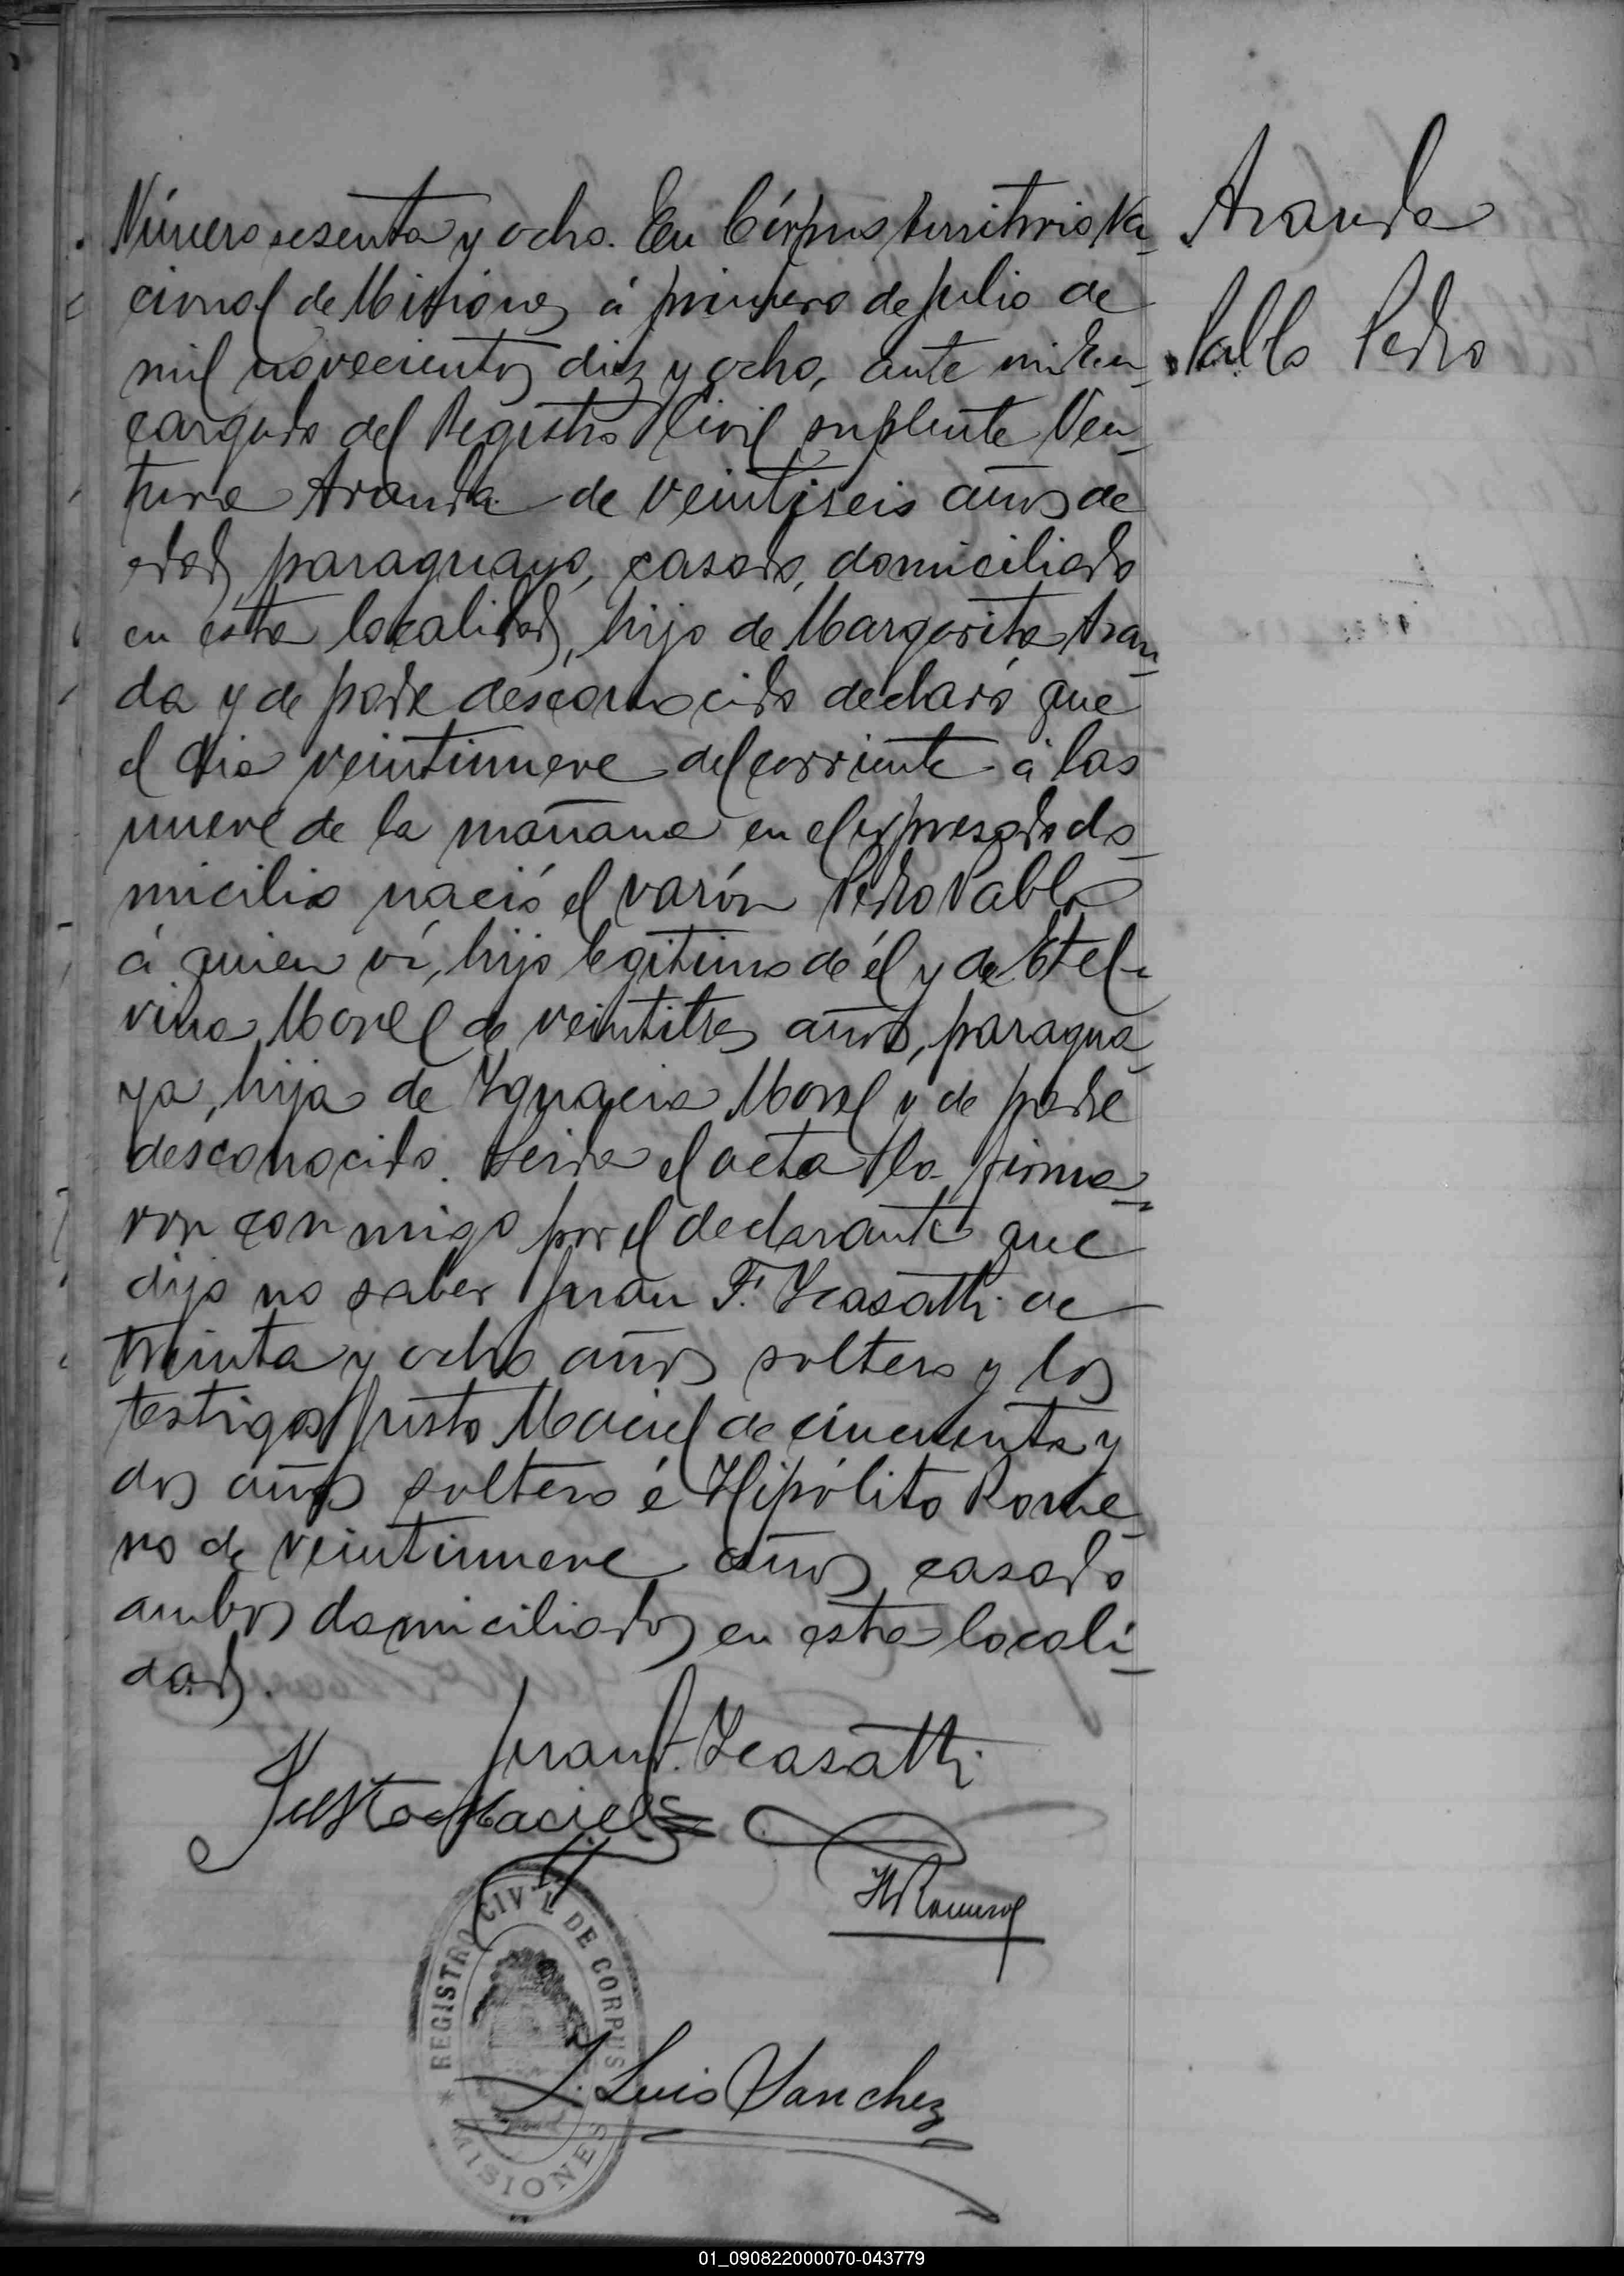 Aranda
Pablo Pedro
Número sesenta y ocho. En Córpus territorio Na-
cional de Misiones á primero de Julio de
mil novecientos diez y ocho, ante mi En-
cargado del Registro Civil suplente Ven-
tura Aranda de veintiseis años de
edad, paraguayo, casado, domiciliado
en esta localidad, hijo de Margarita Aran-
da y de padre desconocido declaró que
el dia veintinueve del corriente á las
nueve de la mañana en el expresado do-
micilio nació el varón Pedro Pablo
á quien ví, hijo legitimo de él y de Etel-
vina Morel de veintitres años, paragua-
ya, hija de Ignacia Morel y de padre
desconocido. Leida el acta la firma-
ron conmigo por el declarante que
dijo no saber Juan F. Icasatti de
treinta y ocho años soltero y los
testigos Justo Maciel de cincuenta y
dos años soltero é Hipólito Rome-
ro de veintinueve años, casado
ambos domiciliados en esta locali-
dad.
Juan F. Icasatti
Justo Maciel
H Romero
REGISTRO CIVIL DE CORPUS
* MISIONES
J. Luis Sanchez
01_090822000070-043779